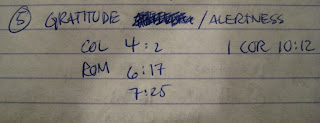 ⑤ GRATITUDE / ALERTNESS
COL 4:2 1 COR 10:12
ROM 6:17
7:25